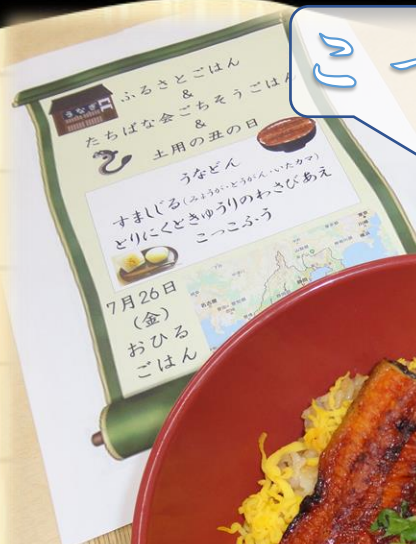 こ
うなぎ
ふるさとごはん
&
たちばな会ごちそうごはん
&
土用の丑の日
うなどん
すましじる(みょうが・とうがん・いたカマ)
とりにくときゅうりのわさびあえ
こっこふう
7月26日
(金)
おひる
ごはん